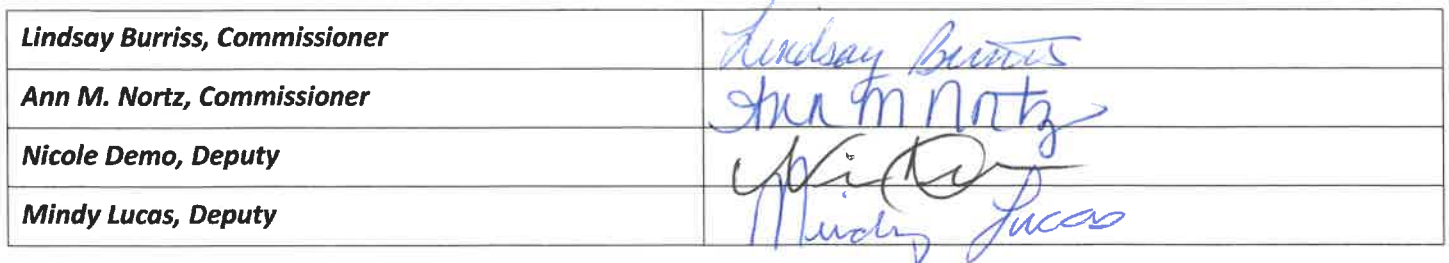 Lindsay Burriss, Commissioner Lindsay Burriss
Ann M. Nortz, Commissioner Ann M Nortz
Nicole Demo, Deputy
Mindy Lucas, Deputy Mindy Lucas